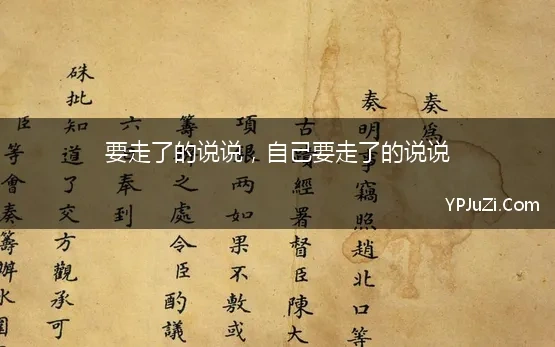 要走了的说说，自己要走了的说说
YPJuZi.Com
奏為
奏明事竊照趙北口等
經署督臣陳大
項銀兩如果不敷或
籌之處令臣酌議
六奉到
硃批知道了交方觀承可
臣等會奏籌水圍